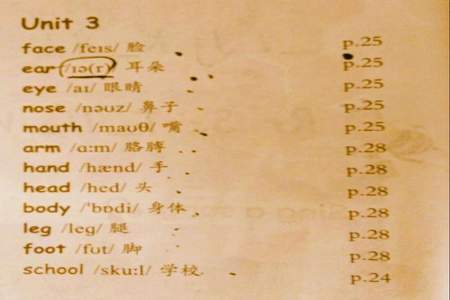 Unit 3
face /feɪs/ 脸 p.25
ear /ɪə(r)/ 耳朵 p.25
eye /aɪ/ 眼睛 p.25
nose /nəʊz/ 鼻子 p.25
mouth /maʊθ/ 嘴 p.25
arm /ɑ:m/ 胳膊 p.28
hand /hænd/ 手 p.28
head /hed/ 头 p.28
body /'bɒdi/ 身体 p.28
leg /leg/ 腿 p.28
foot /fʊt/ 脚 p.28
school /sku:l/ 学校 p.24